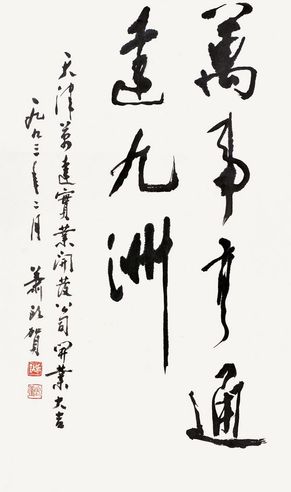 萬事亨通
達九洲
天津萬達實業開發公司開業大吉
一九九三年二月 蕭朗賀